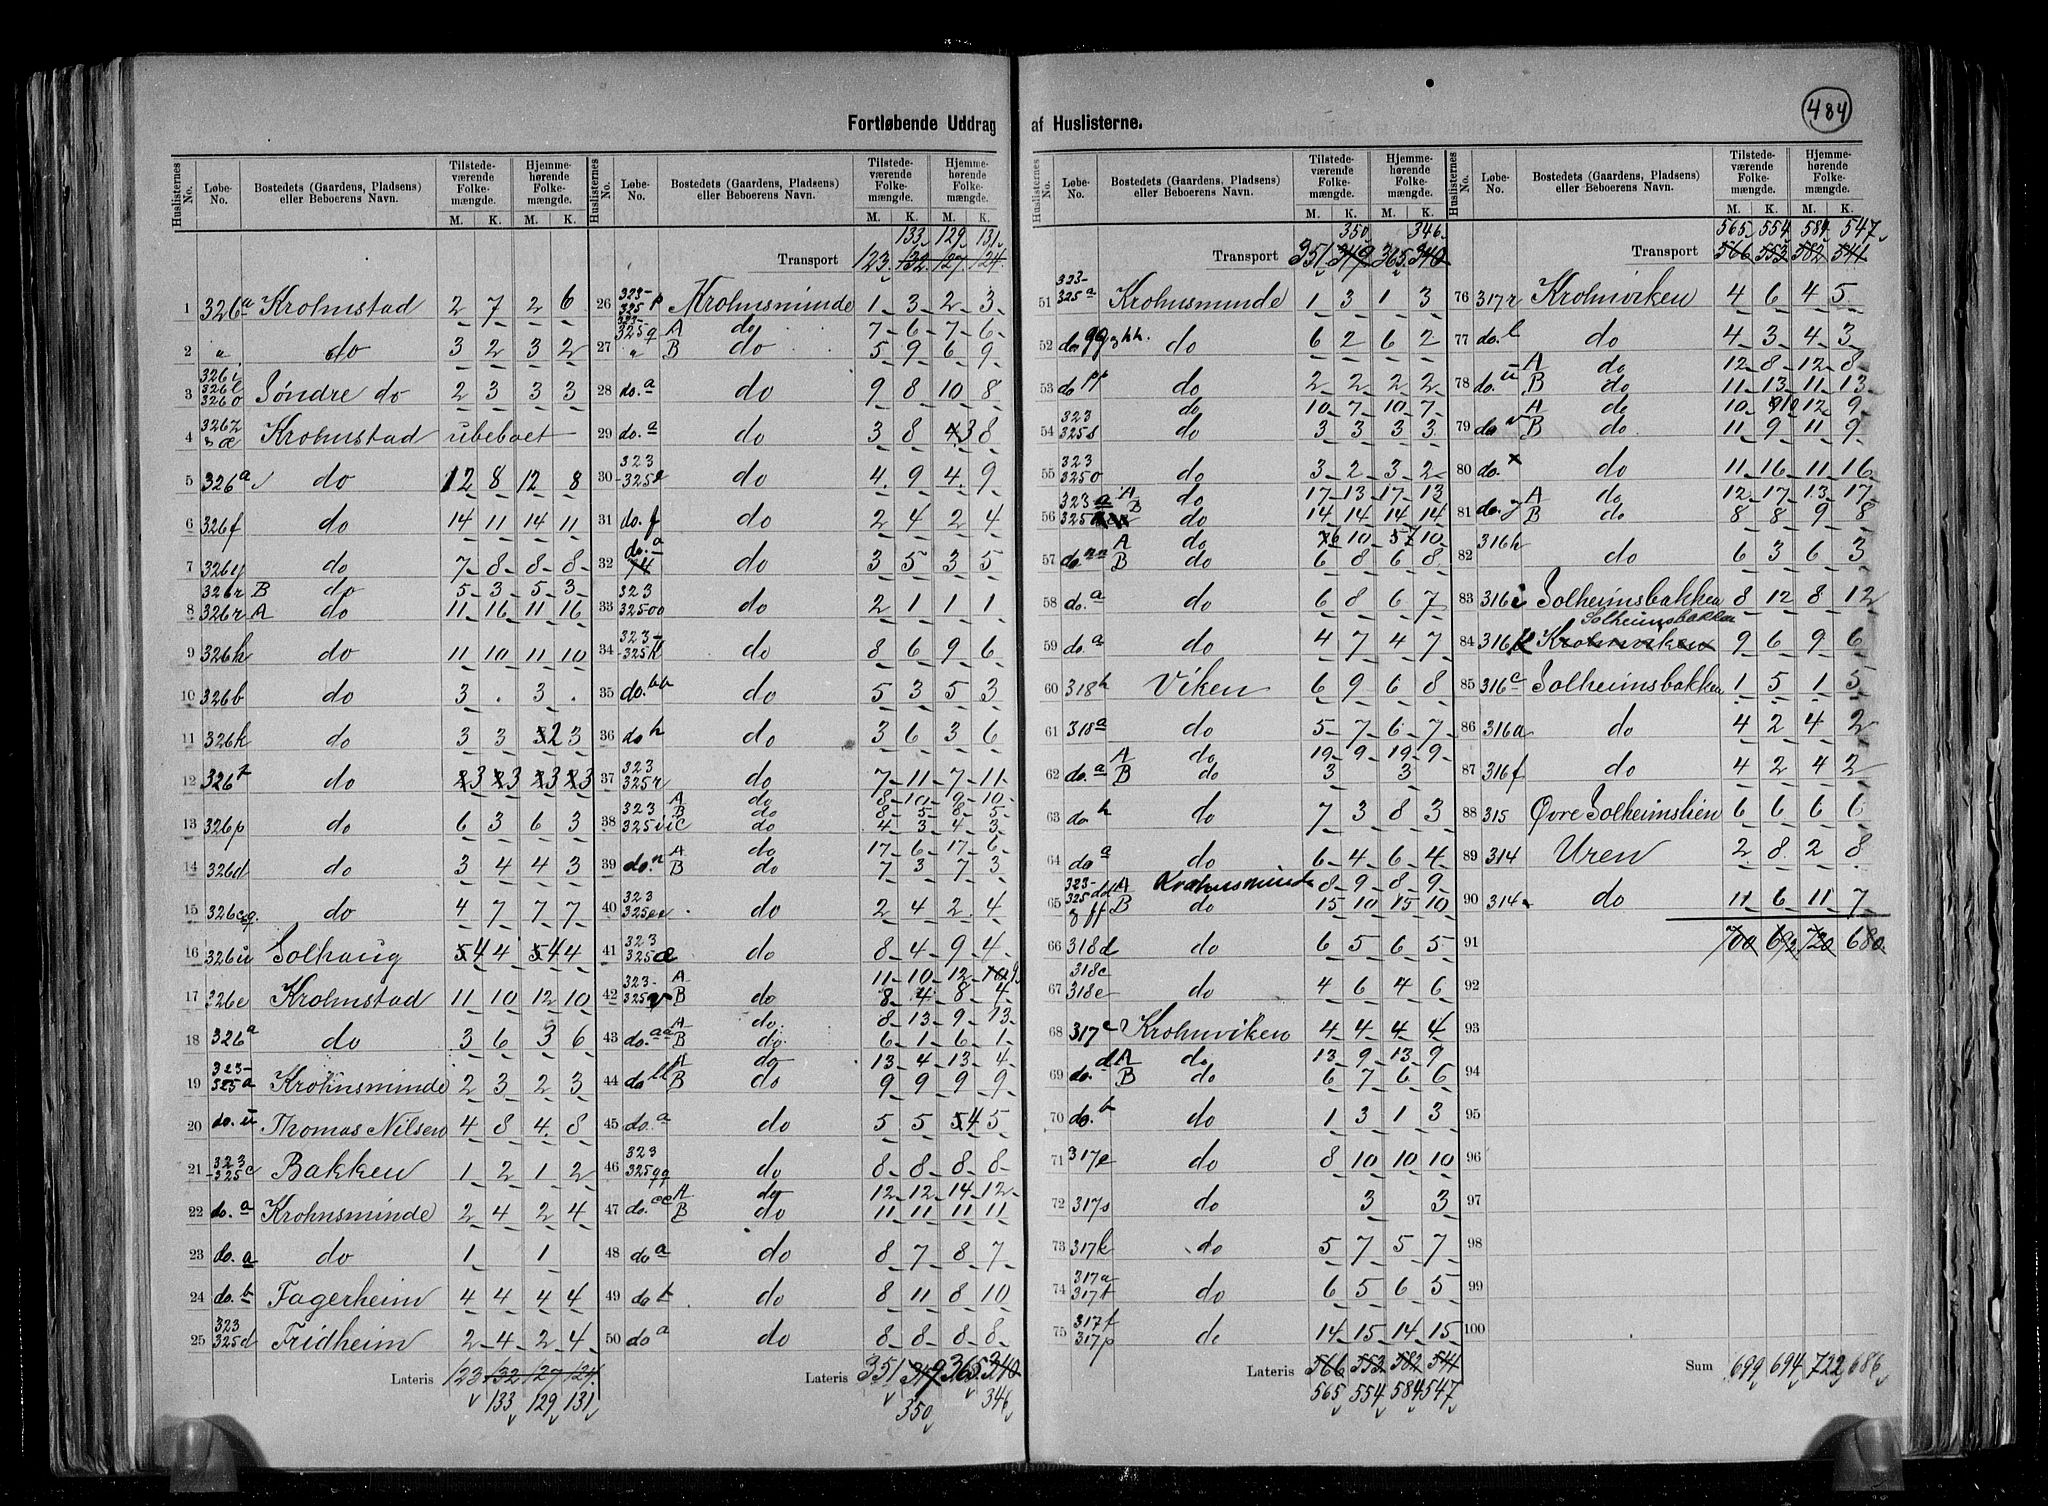 484
Fortløbende Uddrag af Huslisterne.
Huslisternes No. Løbe-No. Bostedets (Gaardens, Pladsens) eller Beboerens Navn. Tilstedeværende Folkemængde. M. K. Hjemmehørende Folkemængde. M. K.
1 326a Krohnstad 2 7 2 6
2 " do 3 2 3 2
3 326i 326l 326o Søndre do 2 3 3 3
4 326z & æ Krohnstad ubeboet
5 326a do 12 8 12 8
6 326f do 14 11 14 11
7 326y do 7 8 8 8
326r B do 5 3 5 3
8 326r A do 11 16 11 16
9 326h do 11 10 11 10
10 326b do 3 . 3 .
11 326k do 3 3 2 3
12 326t do 3 3 3 3
13 326p do 6 3 6 3
14 326d do 3 4 4 3
15 326c do 4 7 7 7
16 326u Solhaug 4 4 4 4
17 326e Krohnstad 11 10 12 10
18 326a do 3 6 3 6
19 323-325a Krohnsminde 2 3 2 3
20 do. u Thomas Nilsen 4 8 4 8
21 323-325c Bakken 1 2 1 2
22 do. a Krohnsminde 2 4 2 4
23 do. a do 1 1
24 do. b Fagerheim 4 4 4 4
25 323 325d Fridheim 2 4 2 4
Lateris 123 132 127 124
133 129 131
Huslisternes No. Løbe-No. Bostedets (Gaardens, Pladsens) eller Beboerens Navn. Tilstedeværende Folkemængde. M. K. Hjemmehørende Folkemængde. M. K.
133 129 131
Transport 123 132 127 124
26 323-325p Krohnsminde 1 3 2 3
323-325q A do 7 6 7 6
27 " B do 5 9 6 9
28 do. a do 9 8 10 8
29 do. a do 3 8 3 8
30 323-325e do 4 9 4 9
31 do. f do 2 4 2 4
32 do. a do 3 5 3 5
33 323 325oo do 2 1 1 1
34 323-325k do 8 6 9 6
35 do. bb do 5 3 5 3
36 do h do 3 6 3 6
37 323 325r do 7 11 7 11
A do 8 10 9 10
38 323 325i B do 8 5 8 5
C do 4 3 4 3
39 do. n A do 17 6 17 6
B do 7 3 7 3
40 323 325ee do 2 4 2 4
41 323 325æ do 8 4 9 4
42 323-325v A 11 10 12 9
B do 8 4 8 4
43 do. aa A do 8 13 9 13
B do. 6 1 6 1
44 do ll A do 13 4 13 4
B do 9 9 9 9
45 do. a do 5 5 4 5
46 323 325qq do 8 8 8 8
47 do. cc A do 12 12 14 12
B do 11 11 11 11
48 do a do 8 7 8 7
49 do t do 8 11 8 10
50 do a do 8 8 8 8
Lateris 351 349 365 340
350 346
Huslisternes No. Løbe-No. Bostedets (Gaardens, Pladsens) eller Beboerens Navn. Tilstedeværende Folkemængde. M. K. Hjemmehørende Folkemængde. M. K.
350 346
Transport 351 349 365 340
51 323-325a Krohnsminde 1 3 1 3
52 do. gg & hh. do 6 2 6 2
53 do pp do 2 2 2 2
do 10 7 10 7
54 323 325s do 3 3 3 3
55 323 325o do 3 2 3 2
56 323 a A do 17 13 17 13
325 B do 14 14 14 14
57 do nn A do 6 10 7 10
B do 6 8 6 8
58 do. a do 6 8 6 7
59 do. a do 4 7 4 7
60 318h Viken 6 9 6 8
61 318a do 5 7 6 7
62 do. a A do 19 9 19 9
B do 3 3
63 do h do 7 3 8 3
64 do a do 6 4 6 4
65 323-325dd A Krohnsminde 8 9 8 9
& ff B do 15 10 15 10
66 318d do 6 5 6 5
67 318c 318e do 4 6 4 6
68 317c Krohnviken 4 4 4 4
69 do. d A do 13 9 13 9
B do 6 7 6 6
70 do. b do 1 3 1 3
71 317e do 8 10 10 10
72 317s do 3 3
73 317k do 5 7 5 7
74 317a 317t do 6 5 6 5
75 317f 317p do 14 15 14 15
Lateris 566 552 582 544
565 554 584 547
Huslisternes No. Løbe-No. Bostedets (Gaardens, Pladsens) eller Beboerens Navn. Tilstedeværende Folkemængde. M. K. Hjemmehørende Folkemængde. M. K.
565 554 584 547
Transport 566 552 582 541
76 317r Krohnviken 4 6 4 5
77 do. l do 4 3 4 3
78 do. u A do 12 8 12 8
B do 11 13 11 13
79 do v A do 10 10 12 9
B do 11 9 11 9
80 do. x do 11 16 11 16
81 do. y A do 12 17 13 17
B do 8 8 9 8
82 316h do 6 3 6 3
83 316i Solheimsbakken 8 12 8 12
Solheimsbakken
84 316k Krohnviken 9 6 9 6
85 316c Solheimsbakken 1 5 1 5
86 316a do 4 2 4 2
87 316f do 4 2 4 2
88 315 Øvre Solheimslien 6 6 6 6
89 314 Uren 2 8 2 8
90 314 do 11 6 11 7
91 700 692 720 680
92
93
94
95
96
97
98
99
100
Sum 699 694 722 686